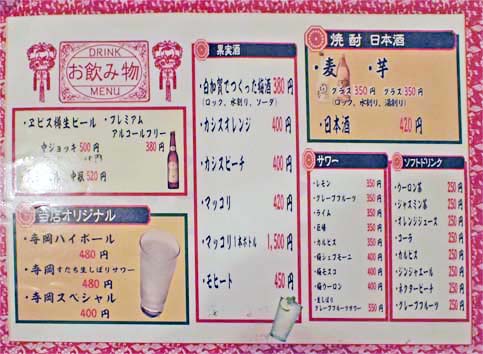 DRINK
お飲み物
MENU
・ヱビス樽生ビール
中ジョッキ 500円
中瓶 520円
・プレミアム
アルコールフリー
380円
当店オリジナル
・寿岡ハイボール
480円
・寿岡すだち生しぼりサワー
480円
・寿岡スペシャル
400円
果実酒
・白加賀でつくった梅酒 380円
(ロック、水割り、ソーダ)
・カシスオレンジ
400円
・カシスピーチ
400円
・マッコリ
420円
・マッコリ1本ボトル
1,500円
・モヒート
450円
焼酎 日本酒
・麦 ・芋
グラス 350円 グラス 350円
(ロック、水割り、湯割り)
・日本酒 420円
サワー
・レモン 350円
・グレープフルーツ 350円
・ライム 350円
・巨峰 350円
・カルピス 350円
・梅ジュフモーニ 400円
・梅モスコ 400円
・梅ウーロン 400円
・生しぼり
グレープフルーツサワー 550円
ソフトドリンク
・ウーロン茶 250円
・ジャスミン茶 250円
・オレンジジュース 250円
・コーラ 250円
・カルピス 250円
・ジンジャエール 250円
・ネクターピーチ 250円
・グレープフルーツ 250円